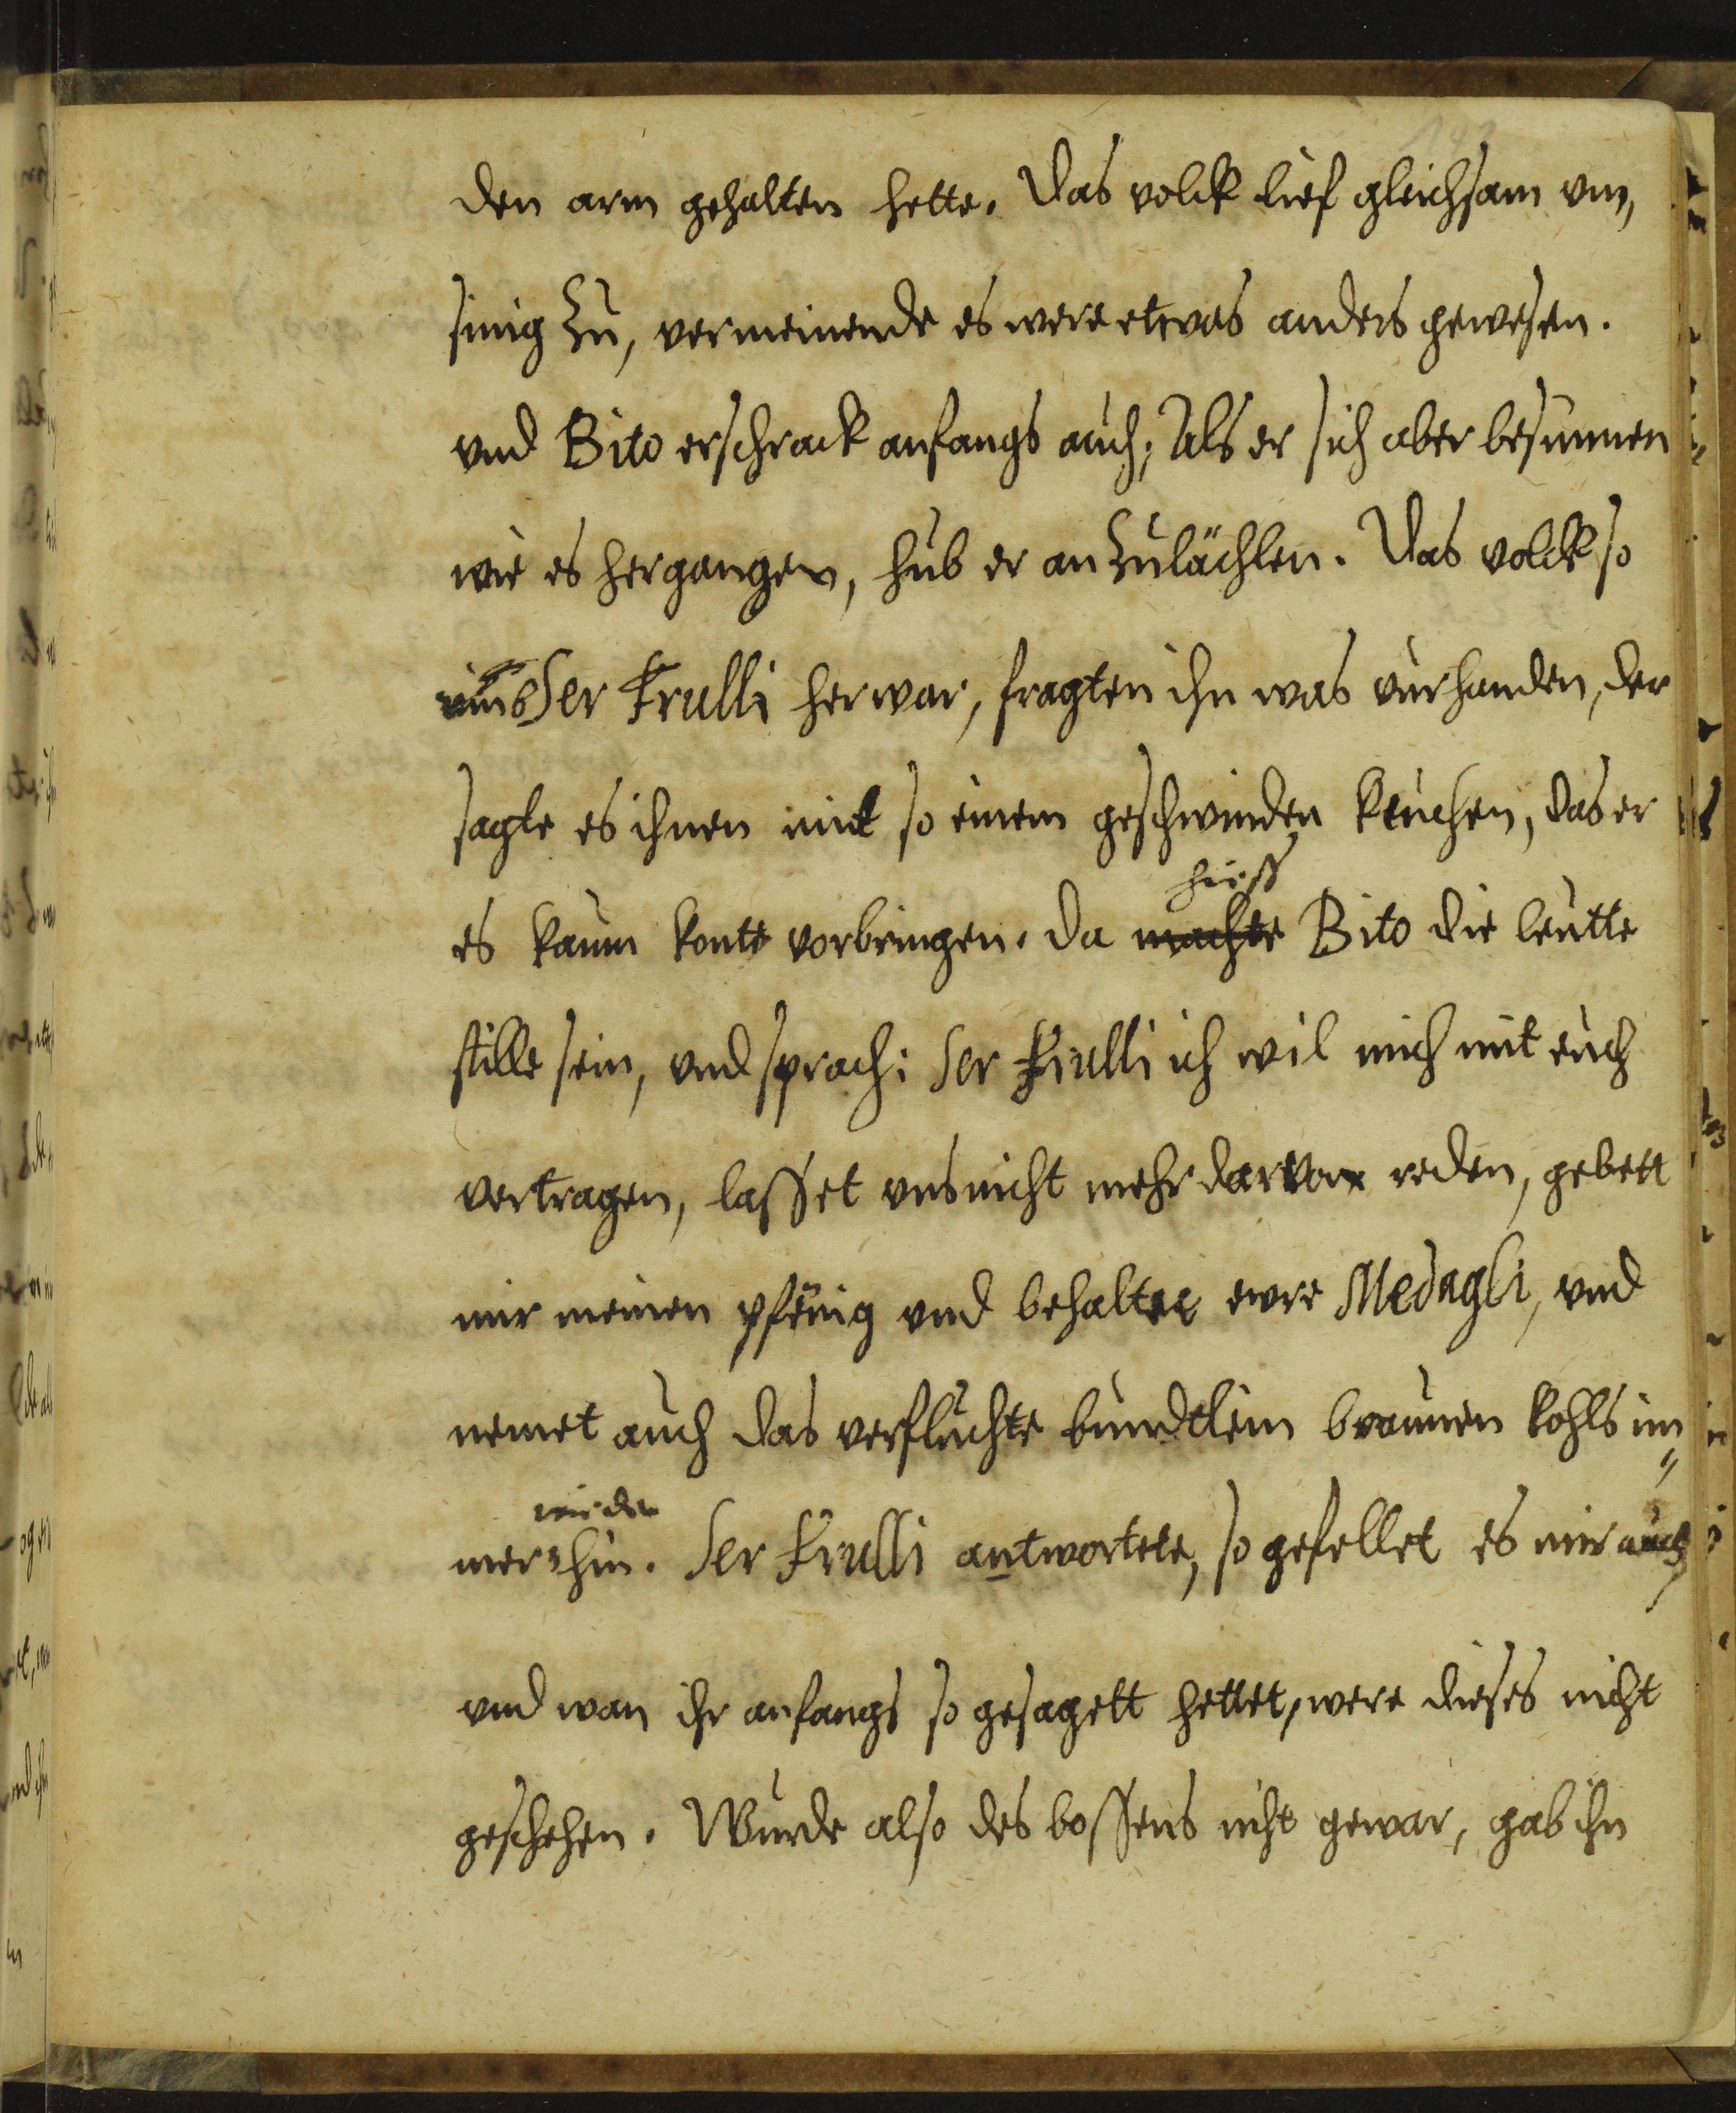 143
den arm gehalten hette. Das volck lief gleichsam vn,
sinig zu, vermeinende es were etwas anders gewesen.
vnd Bito erschrack anfangs auch; Als er sich aber besunnen
wie es hergangen, hub er an zulächlen. Das volck so
vmb Ser Frulli her war, fragten ihn was vorhanden, der
sagte es ihnen mit so einem geschwinden keuchen, das er
hiess
es kaum konte vorbringen. Da machte Bito die leutte
stille sein, vnd sprach: Ser Frulli ich wil mich mit euch
vertragen, lasset vns nicht mehr darvon reden, gebett
mir meinen pfenig vnd behaltet ewre Medagli, vnd
nemet auch das verfluchte bundtlein braunen kohls im„
wieder
mer hin. Ser Frulli antwortete, so gefellet es mir auch,
vnd wan ihr anfangs so gesagett hettet, were dieses nicht
geschehen. Wurde also des bossens nicht gewar, gab ihn